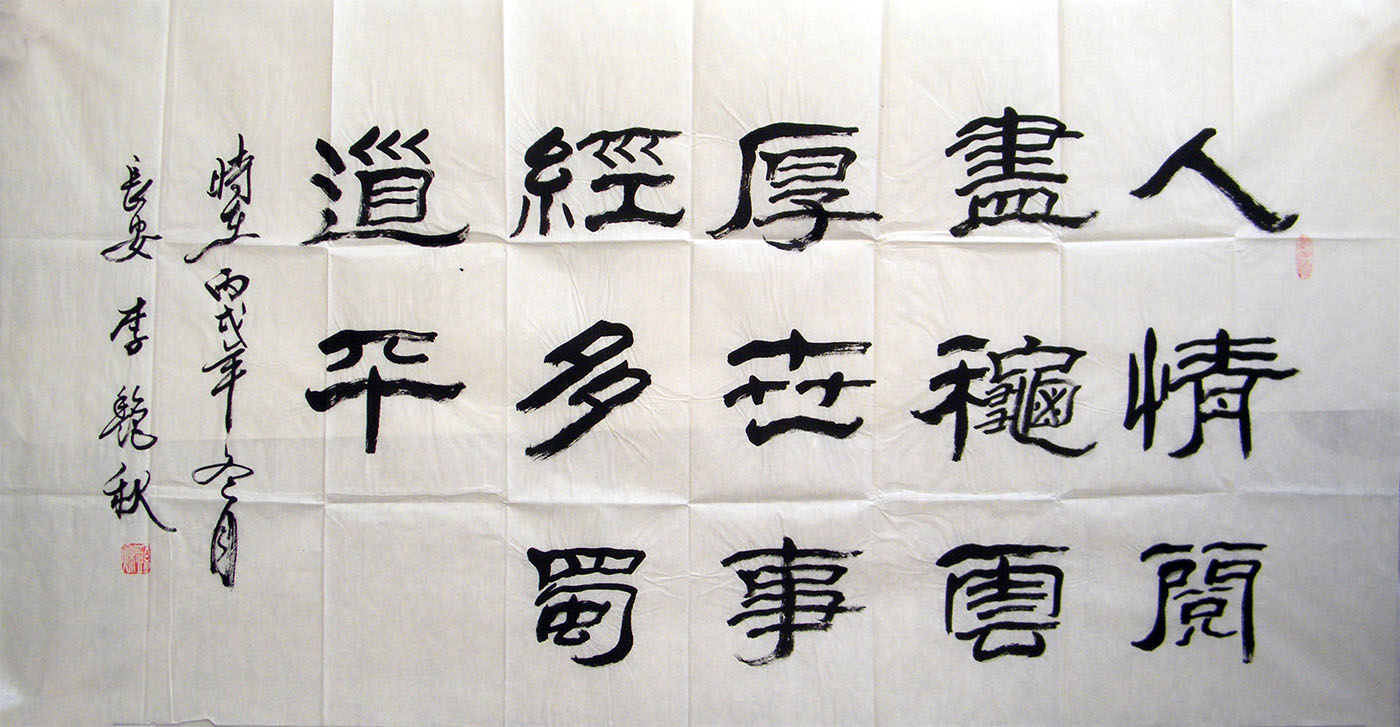 人情閱
盡龝雲
厚世事
經多蜀
道平
時在丙戌年冬月
長安李秋